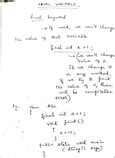 FINAL VARIABLE
final keyword
→ If used, we can't change
the value of that variable.
final int a=1;
→ we can't change
value of a.
If we change it
in any method,
if we try to print
the value of a there
will be compilation
error)
eg: class Abc
{ final int a=1;
void print()
{
a=10;
}
public static void main
(String[] args)